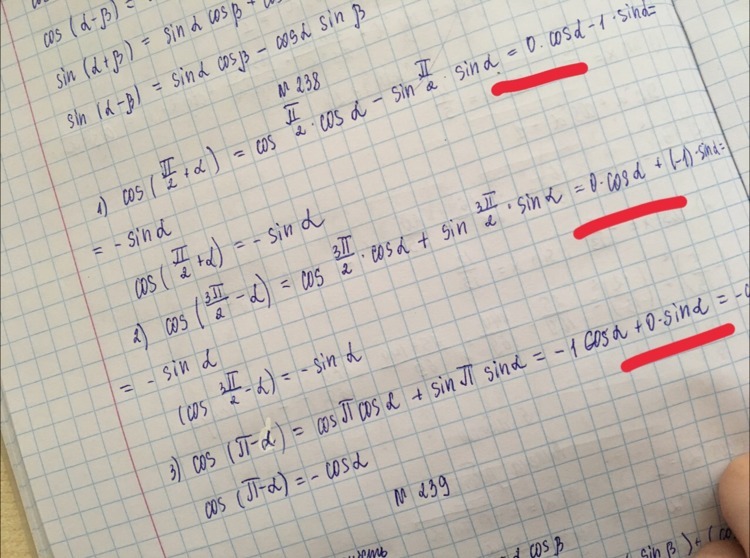 cos (α-β) =
sin (α+β) = sinα cosβ +
sin (α-β) = sinα cosβ - cosα sin β
N 238
1) cos(π/2 + α) = cos π/2 · cos α - sin π/2 · sinα = 0 · cosα - 1 · sinα =
= - sinα
cos(π/2 + α) = - sin α
2) cos(3π/2 - α) = cos 3π/2 · cosα + sin 3π/2 · sinα = 0 · cosα + (-1) · sinα =
= - sin α
(cos 3π/2 - α) = - sin α
3) cos (π-α) = cosπ cosα + sinπ sinα = -1 cosα + 0 · sinα = -
cos (π-α) = - cosα
N 239
cos β
sin β) + (